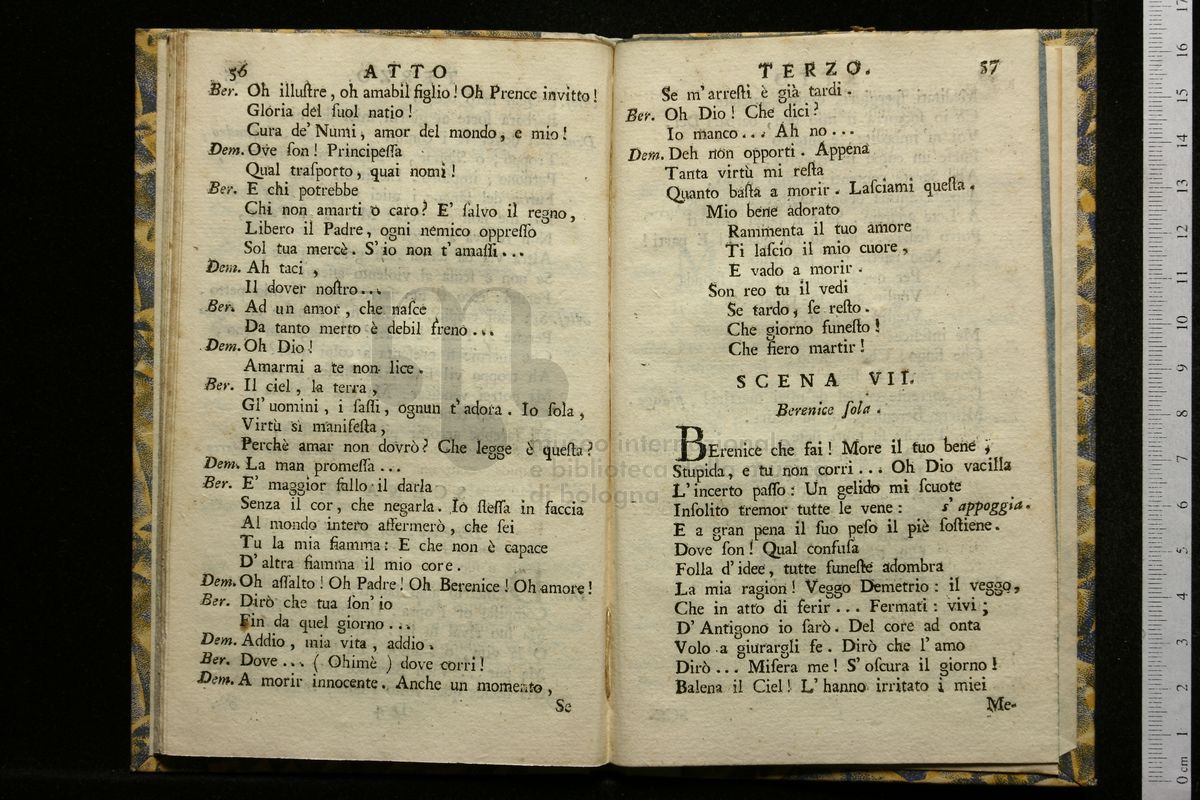 56 ATTO
Ber. Oh illuſtre, oh amabil figlio! Oh Prence invitto!
Gloria del ſuol natio!
Cura de' Numi, amor del mondo, e mio!
Dem. Ove ſon! Principeſſa
Qual traſporto, quai nomi!
Ber. E chi potrebbe
Chi non amarti o caro? E' ſalvo il regno,
Libero il Padre, ogni nemico oppreſſo
Sol tua mercè. S' io non t' amaſſi...
Dem. Ah taci,
Il dover noſtro...
Ber. Ad un amor, che naſce
Da tanto merto è debil freno...
Dem. Oh Dio!
Amarmi a te non lice.
Ber. Il ciel, la terra,
Gl' uomini, i ſaſſi, ognun t' adora. Io ſola,
Virtù sì manifeſta,
Perchè amar non dovrò? Che legge è queſta?
Dem. La man promeſſa...
Ber. E' maggior fallo il darla
Senza il cor, che negarla. Io ſteſſa in faccia
Al mondo intero affermerò, che ſei
Tu la mia fiamma: E che non è capace
D' altra fiamma il mio core.
Dem. Oh aſſalto! Oh Padre! Oh Berenice! Oh amore!
Ber. Dirò che tua ſon' io
Fin da quel giorno...
Dem. Addio, mia vita, addio.
Ber. Dove... ( Ohimè ) dove corri!
Dem. A morir innocente. Anche un momento,
Se
TERZO. 57
Se m' arreſti è già tardi.
Ber. Oh Dio! Che dici?
Io manco... Ah no...
Dem. Deh non opporti. Appena
Tanta virtù mi reſta
Quanto baſta a morir. Laſciami queſta.
Mio bene adorato
Rammenta il tuo amore
Ti laſcio il mio cuore,
E vado a morir.
Son reo tu il vedi
Se tardo, ſe reſto.
Che giorno funeſto!
Che fiero martir!
SCENA VII.
Berenice ſola.
BErenice che fai! More il tuo bene;
Stupida, e tu non corri... Oh Dio vacilla
L' incerto paſſo: Un gelido mi ſcuote
Inſolito tremor tutte le vene: s' appoggia.
E a gran pena il ſuo peſo il piè ſoſtiene.
Dove ſon! Qual confuſa
Folla d' idee, tutte funeſte adombra
La mia ragion! Veggo Demetrio: il veggo,
Che in atto di ferir... Fermati: vivi;
D' Antigono io ſarò. Del core ad onta
Volo a giurargli fe. Dirò che l' amo
Dirò... Miſera me! S' oſcura il giorno!
Balena il Ciel! L' hanno irritato i miei
Me-
museo internazionale
e biblioteca
di bologna
0 cm 1 2 3 4 5 6 7 8 9 10 11 12 13 14 15 16 17